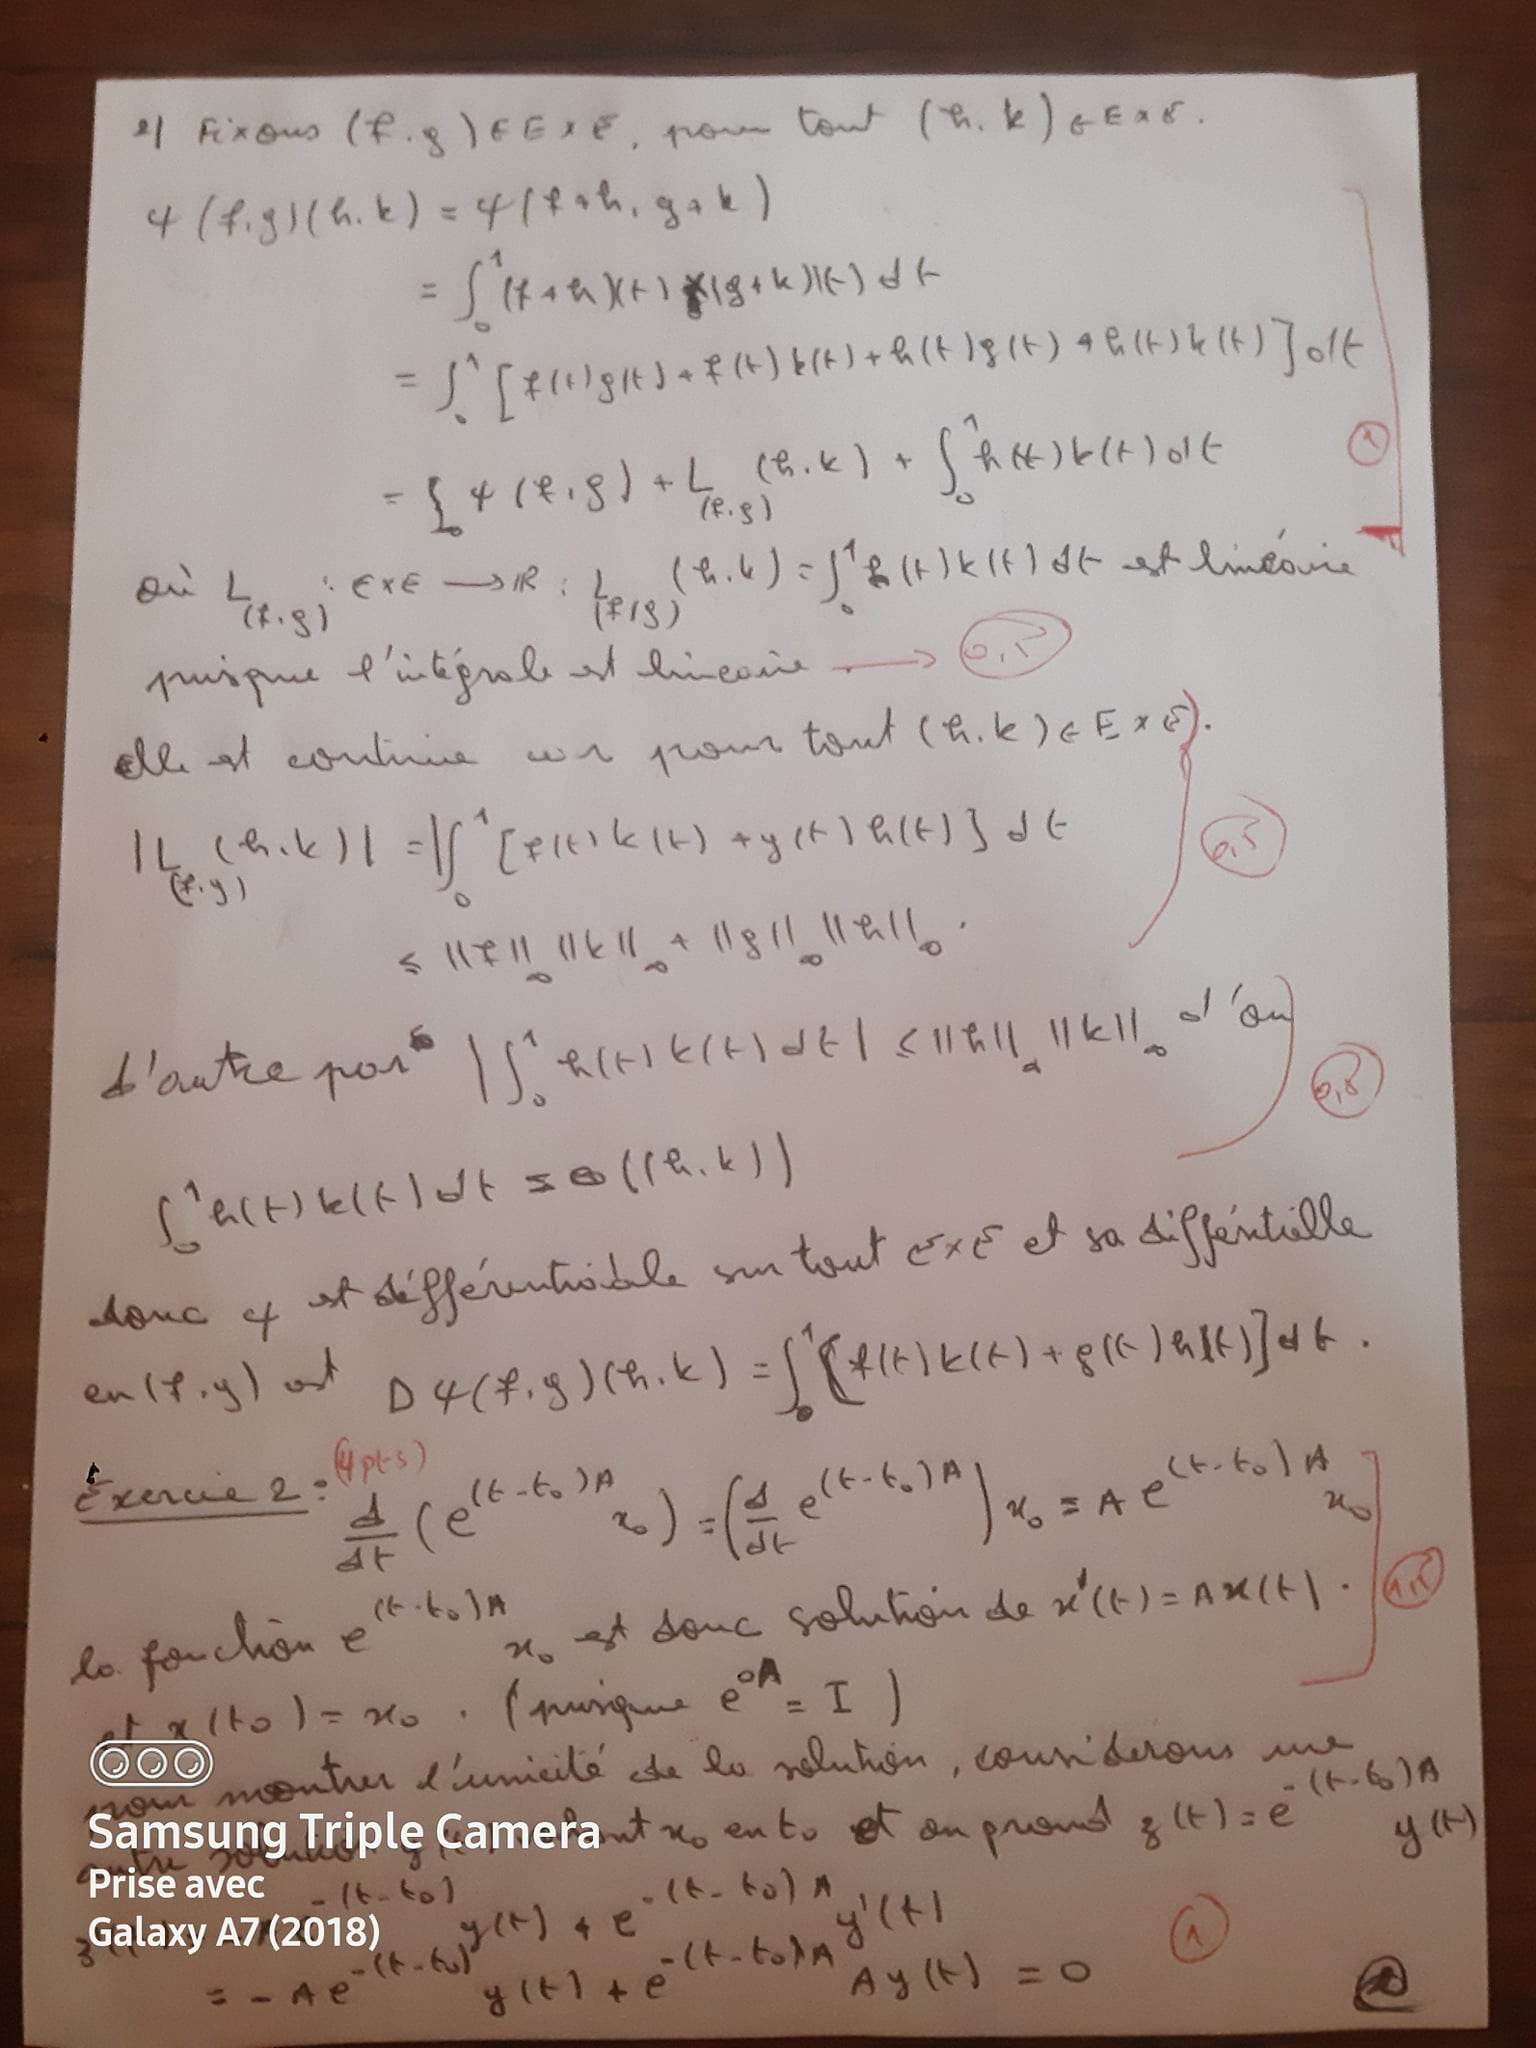 2) Fixons (f.g) ∈ E x E, pour tout (h.k) ∈ E x E.
ψ(f.g)(h.k) = ψ(f+h, g+k)
= ∫₀¹ (f+h)(t) (g+k)(t) dt
= ∫₀¹ [f(t)g(t) + f(t)k(t) + h(t)g(t) + h(t)k(t)] dt
= ψ(f,g) + L_(f.g) (h.k) + ∫₀¹ h(t)k(t) dt
1
où L_(f.g) : E x E → IR : L_(f,g) (h.k) = ∫₀¹ h(t)k(t) dt est linéaire
puisque l'intégrale est lineaire → 0,5
elle est continue car pour tout (h.k) ∈ E x E).
|L_(f.g) (h.k)| = |∫₀¹ [f(t)k(t) + g(t)h(t)] dt
0,5
≤ ||f||_∞ ||k||_∞ + ||g||_∞ ||h||_∞.
d'autre part |∫₀¹ h(t)k(t) dt| ≤ ||h||_∞ ||k||_∞ d'où
0,5
∫₀¹ h(t)k(t) dt = o((h.k))
donc ψ est différentiable sur tout E x E et sa différentielle
en (f.g) est Dψ(f.g)(h.k) = ∫₀¹ [f(t)k(t) + g(t)h(t)] dt.
Exercice 2 : (4 pts) d/dt (e^(t-t₀)A x₀) = (d/dt e^(t-t₀)A) x₀ = A e^(t-t₀)A x₀
la fonction e^(t-t₀)A x₀ est donc solution de x'(t) = A x(t).
1,5
et x(t₀) = x₀. (puisque e^0A = I)
pour montrer l'unicité de la solution, considerons une
autre solution x₀ en t₀ et on prend z(t) = e^-(t-t₀)A y(t)
Samsung Triple Camera
Prise avec
Galaxy A7 (2018)
e^-(t-t₀) y(t) + e^-(t-t₀)A y'(t)
1
= -A e^-(t-t₀) y(t) + e^-(t-t₀)A A y(t) = 0